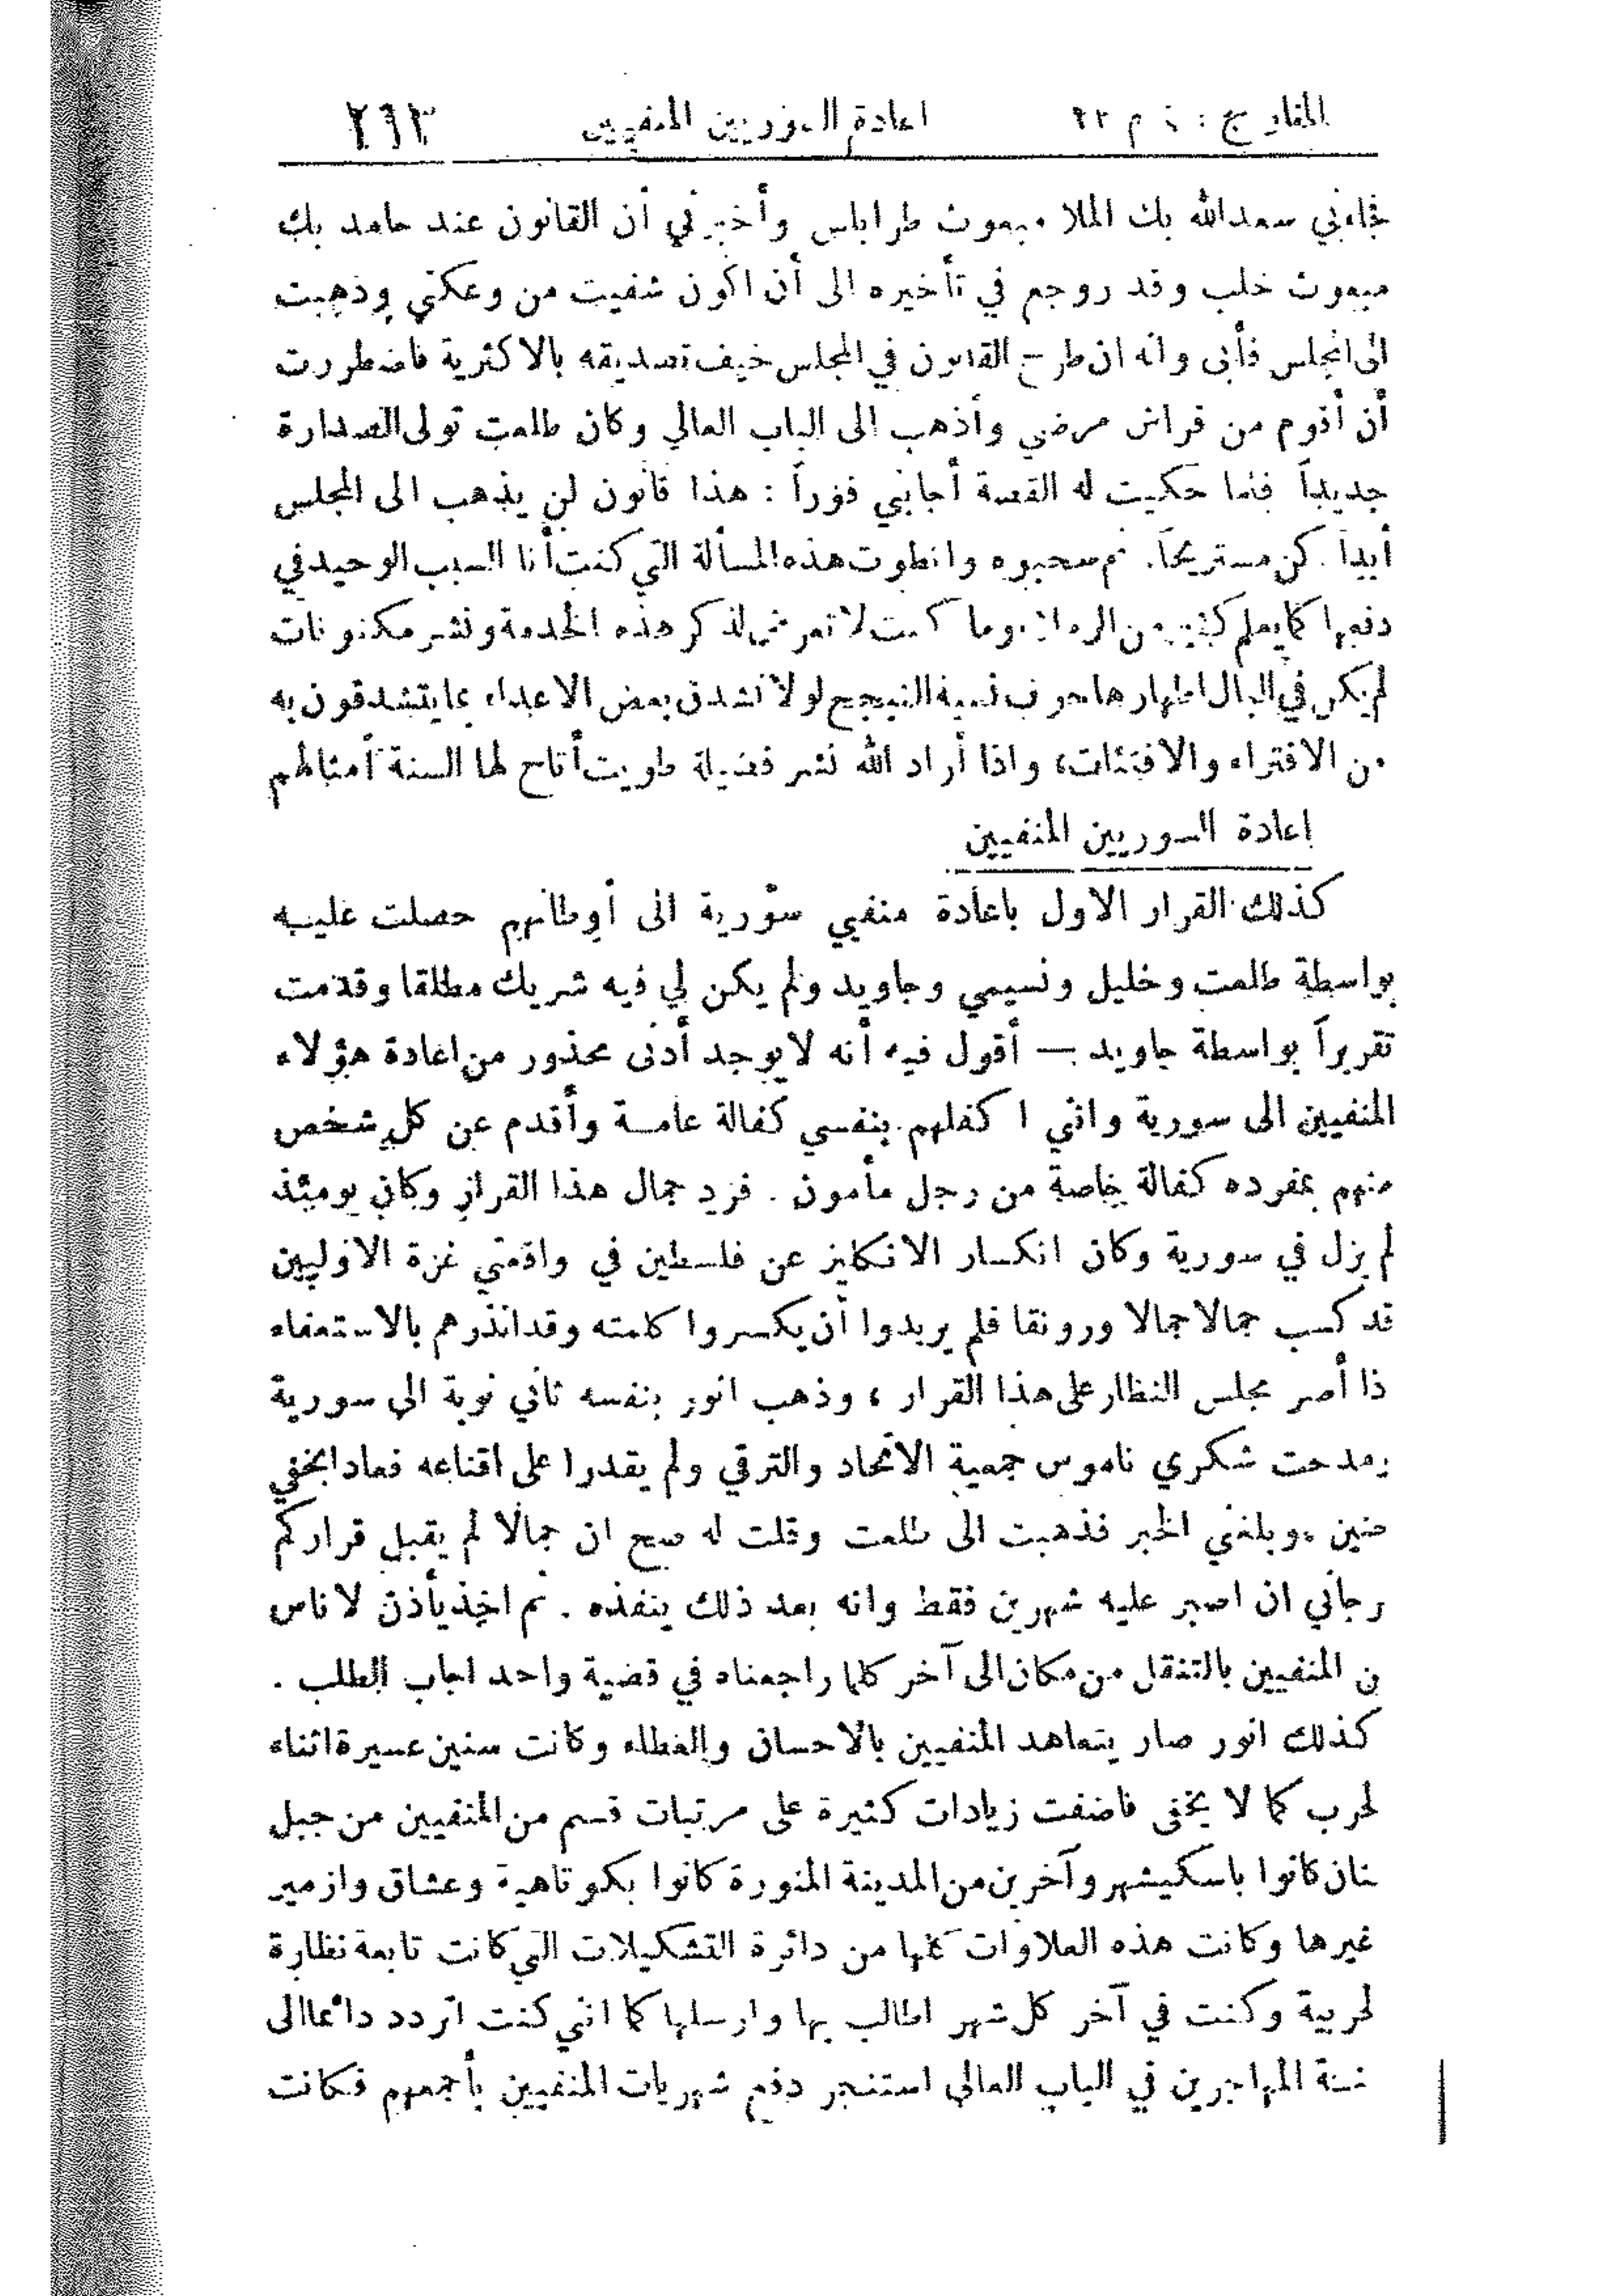 المنار ج : ٤ م ٢٢ اعادة السوريين المنفيين ٢٦٣
فجاءني سعد الله بك الملا مبعوث طرابلس وأخبرني أن القانون عند حامد بك
مبعوث حلب وقد روجع في تأخيره الى أن اكون شفيت من وعكتي وذهبت
الى المجلس فأبى وانه ان طرح القانون في المجلس خيف تصديقه بالاكثرية فاضطررت
أن أقوم من فراش مرضي وأذهب الى الباب العالي وكان طلعت تولى الصدارة
جديداً فلما حكيت له القصة أجابني فوراً : هذا قانون لن يذهب الى المجلس
أبداً كن مستريحاً. ثم سحبوه وانطوت هذه المسألة التي كنت أنا السبب الوحيد في
دفعها كما يعلم كثير من الزملاء وما كنت لاتعرض لذكر هذه الخدمة ونشر مكنونات
لم يكن في البال اظهارها خوف نسبة التبجح لولا تشدق بعض الاعداء بما يتشدقون به
من الافتراء والافتئات، واذا أراد الله نشر فضيلة طويت أتاح لها السنة أمثالهم
اعادة السوريين المنفيين
كذلك القرار الاول باعادة منفيي سورية الى أوطانهم حصلت عليه
بواسطة طلعت وخليل ونسيمي وجاويد ولم يكن لي فيه شريك مطلقا وقدمت
تقريراً بواسطة جاويد — أقول فيه أنه لا يوجد أدنى محذور من اعادة هؤلاء
المنفيين الى سورية واني اكفلهم بنفسي كفالة عامة وأقدم عن كل شخص
منهم بمفرده كفالة خاصة من رجل مأمون . فرد جمال هذا القرار وكان يومئذ
لم يزل في سورية وكان انكسار الانكليز عن فلسطين في واقعتي غزة الاوليين
قد كسب جمالا جمالا ورونقا فلم يريدوا أن يكسروا كلمته وقد انذرهم بالاستعفاء
ذا أصر مجلس النظار على هذا القرار ، وذهب انور بنفسه ثاني نوبة الى سورية
مدحت شكري ناموس جمعية الاتحاد والترقي ولم يقدروا على اقناعه فعادا بخفي
حنين . وبلغني الخبر فذهبت الى طلعت وقلت له صح ان جمالا لم يقبل قراركم
رجاني ان اصبر عليه شهرين فقط وانه بعد ذلك ينفذه . ثم اخذ يأذن لاناس
ن المنفيين بالتنقل من مكان الى آخر كلما راجعناه في قضية واحد اجاب الطلب .
كذلك انور صار يتعاهد المنفيين بالاحسان والعطاء وكانت سنين عسيرة اثناء
لحرب كما لا يخفى فاضفت زيادات كثيرة على مرتبات قسم من المنفيين من جبل
بنان كانوا باسكيشهر وآخرين من المدينة المنورة كانوا بكوتاهية وعشاق وازمير
غيرها وكانت هذه العلاوات كلها من دائرة التشكيلات التي كانت تابعة نظارة
لحربية وكنت في آخر كل شهر اطالب بها وارسلها كما اني كنت اتردد دائما الى
المهاجرين في الباب العالي استنجز دفع شهريات المنفيين بأجمعهم فكانت